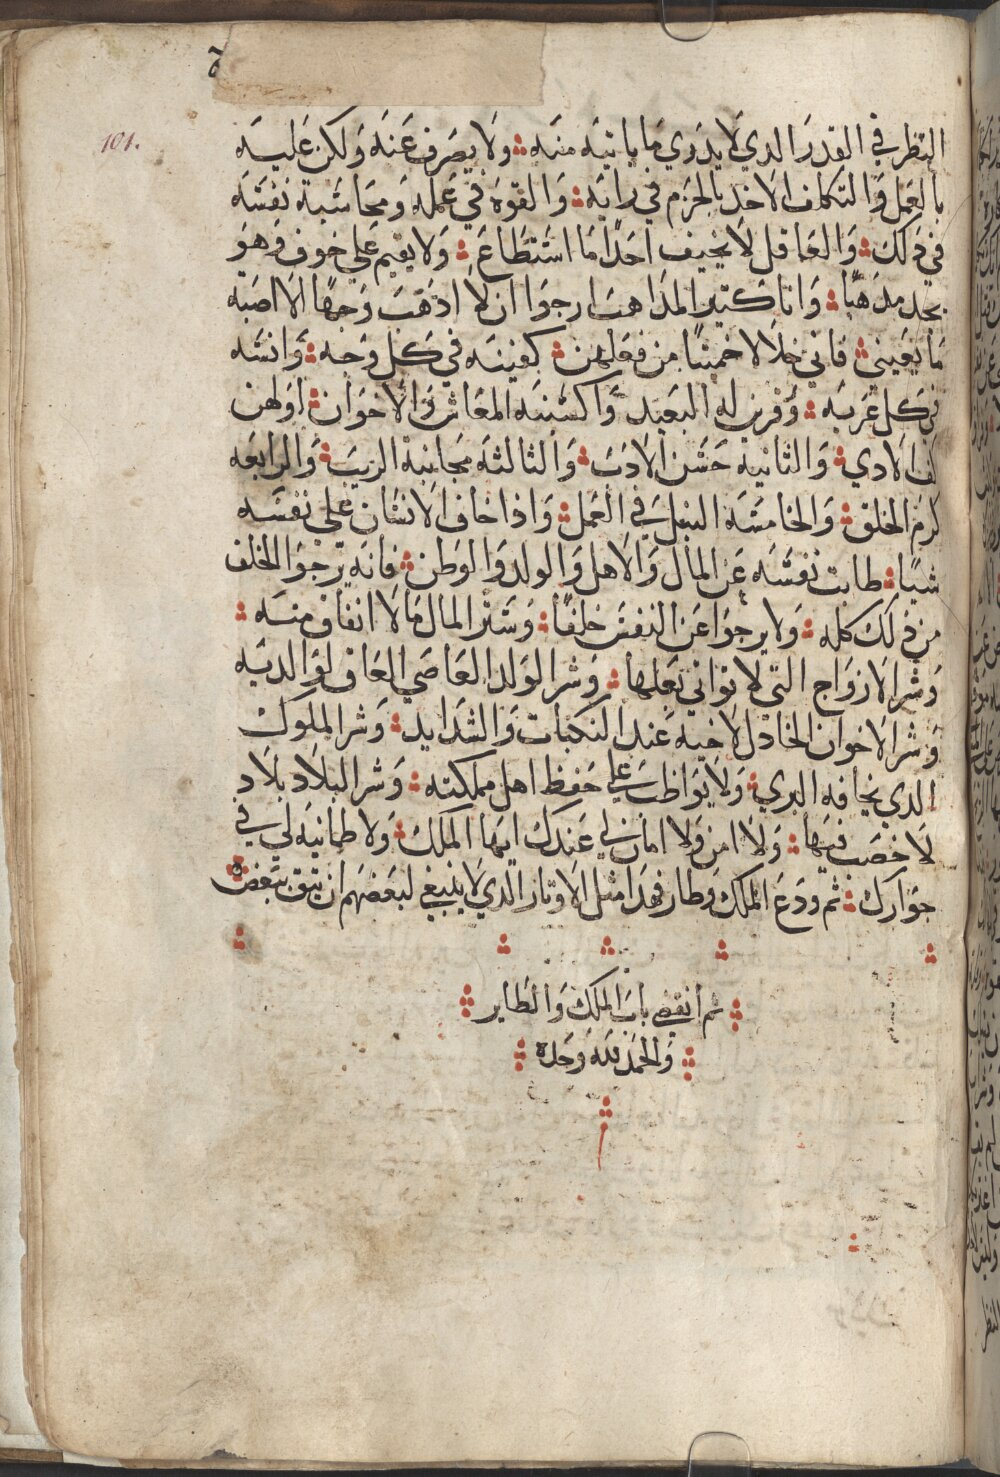 101.
النظر في القدر الدي لا يدري ما ياتيه منه ولا يصرف عنه ولكن عليه
بالعمل والتكلف الاخد بالحزم في رايه والقوة في عمله ومحاسبة نفسه
في دلك والعاقل لا يخيف احدًا ما استطاع ولا يقيم علي خوف وهو
يجد مدهبًا وانا كتير المداهب ارجوا ان لا ادهب وجهًا الا اصبه
ما يغيني فان خلالا خمسًا من فعلهن كفينه في كل وجه وانسه
في كل غربه وقربن له البعيد واكسبنه المعاش والاخوان اولهن
كف الادي والثانيه حسن الادب والثالثه مجانبة الريب والرابعه
كرم الخلق والخامسه النبل في العمل واذا خاف الانسان علي نفسه
شيًا طابت نفسه عن المال والاهل والولد والوطن فانه يرجوا الخلف
من دلك كله ولا يرجوا عن النفس خلفًا وشر المال ما لا انفاق منه
وشر الازواج التي لا تواتي بعلها وشر الولد العاصي العاق لوالديه
وشر الاخوان الخادل لاخيه عند النكبات والشدايد وشر الملوك
الدي يخافه البري ولا يواظب علي حفظ اهل مملكته وشر البلاد بلاد
لا خصب فيها ولا امن ولا امان لي عندك ايها الملك ولا طمانيه لي في
جوارك ثم ودع الملك وطار فهدا مثل الاوتار الدي لا ينبغي لبعضهم ان يتق ببعض
ثم انقضي باب الملك والطاير
والحمد لله وحده